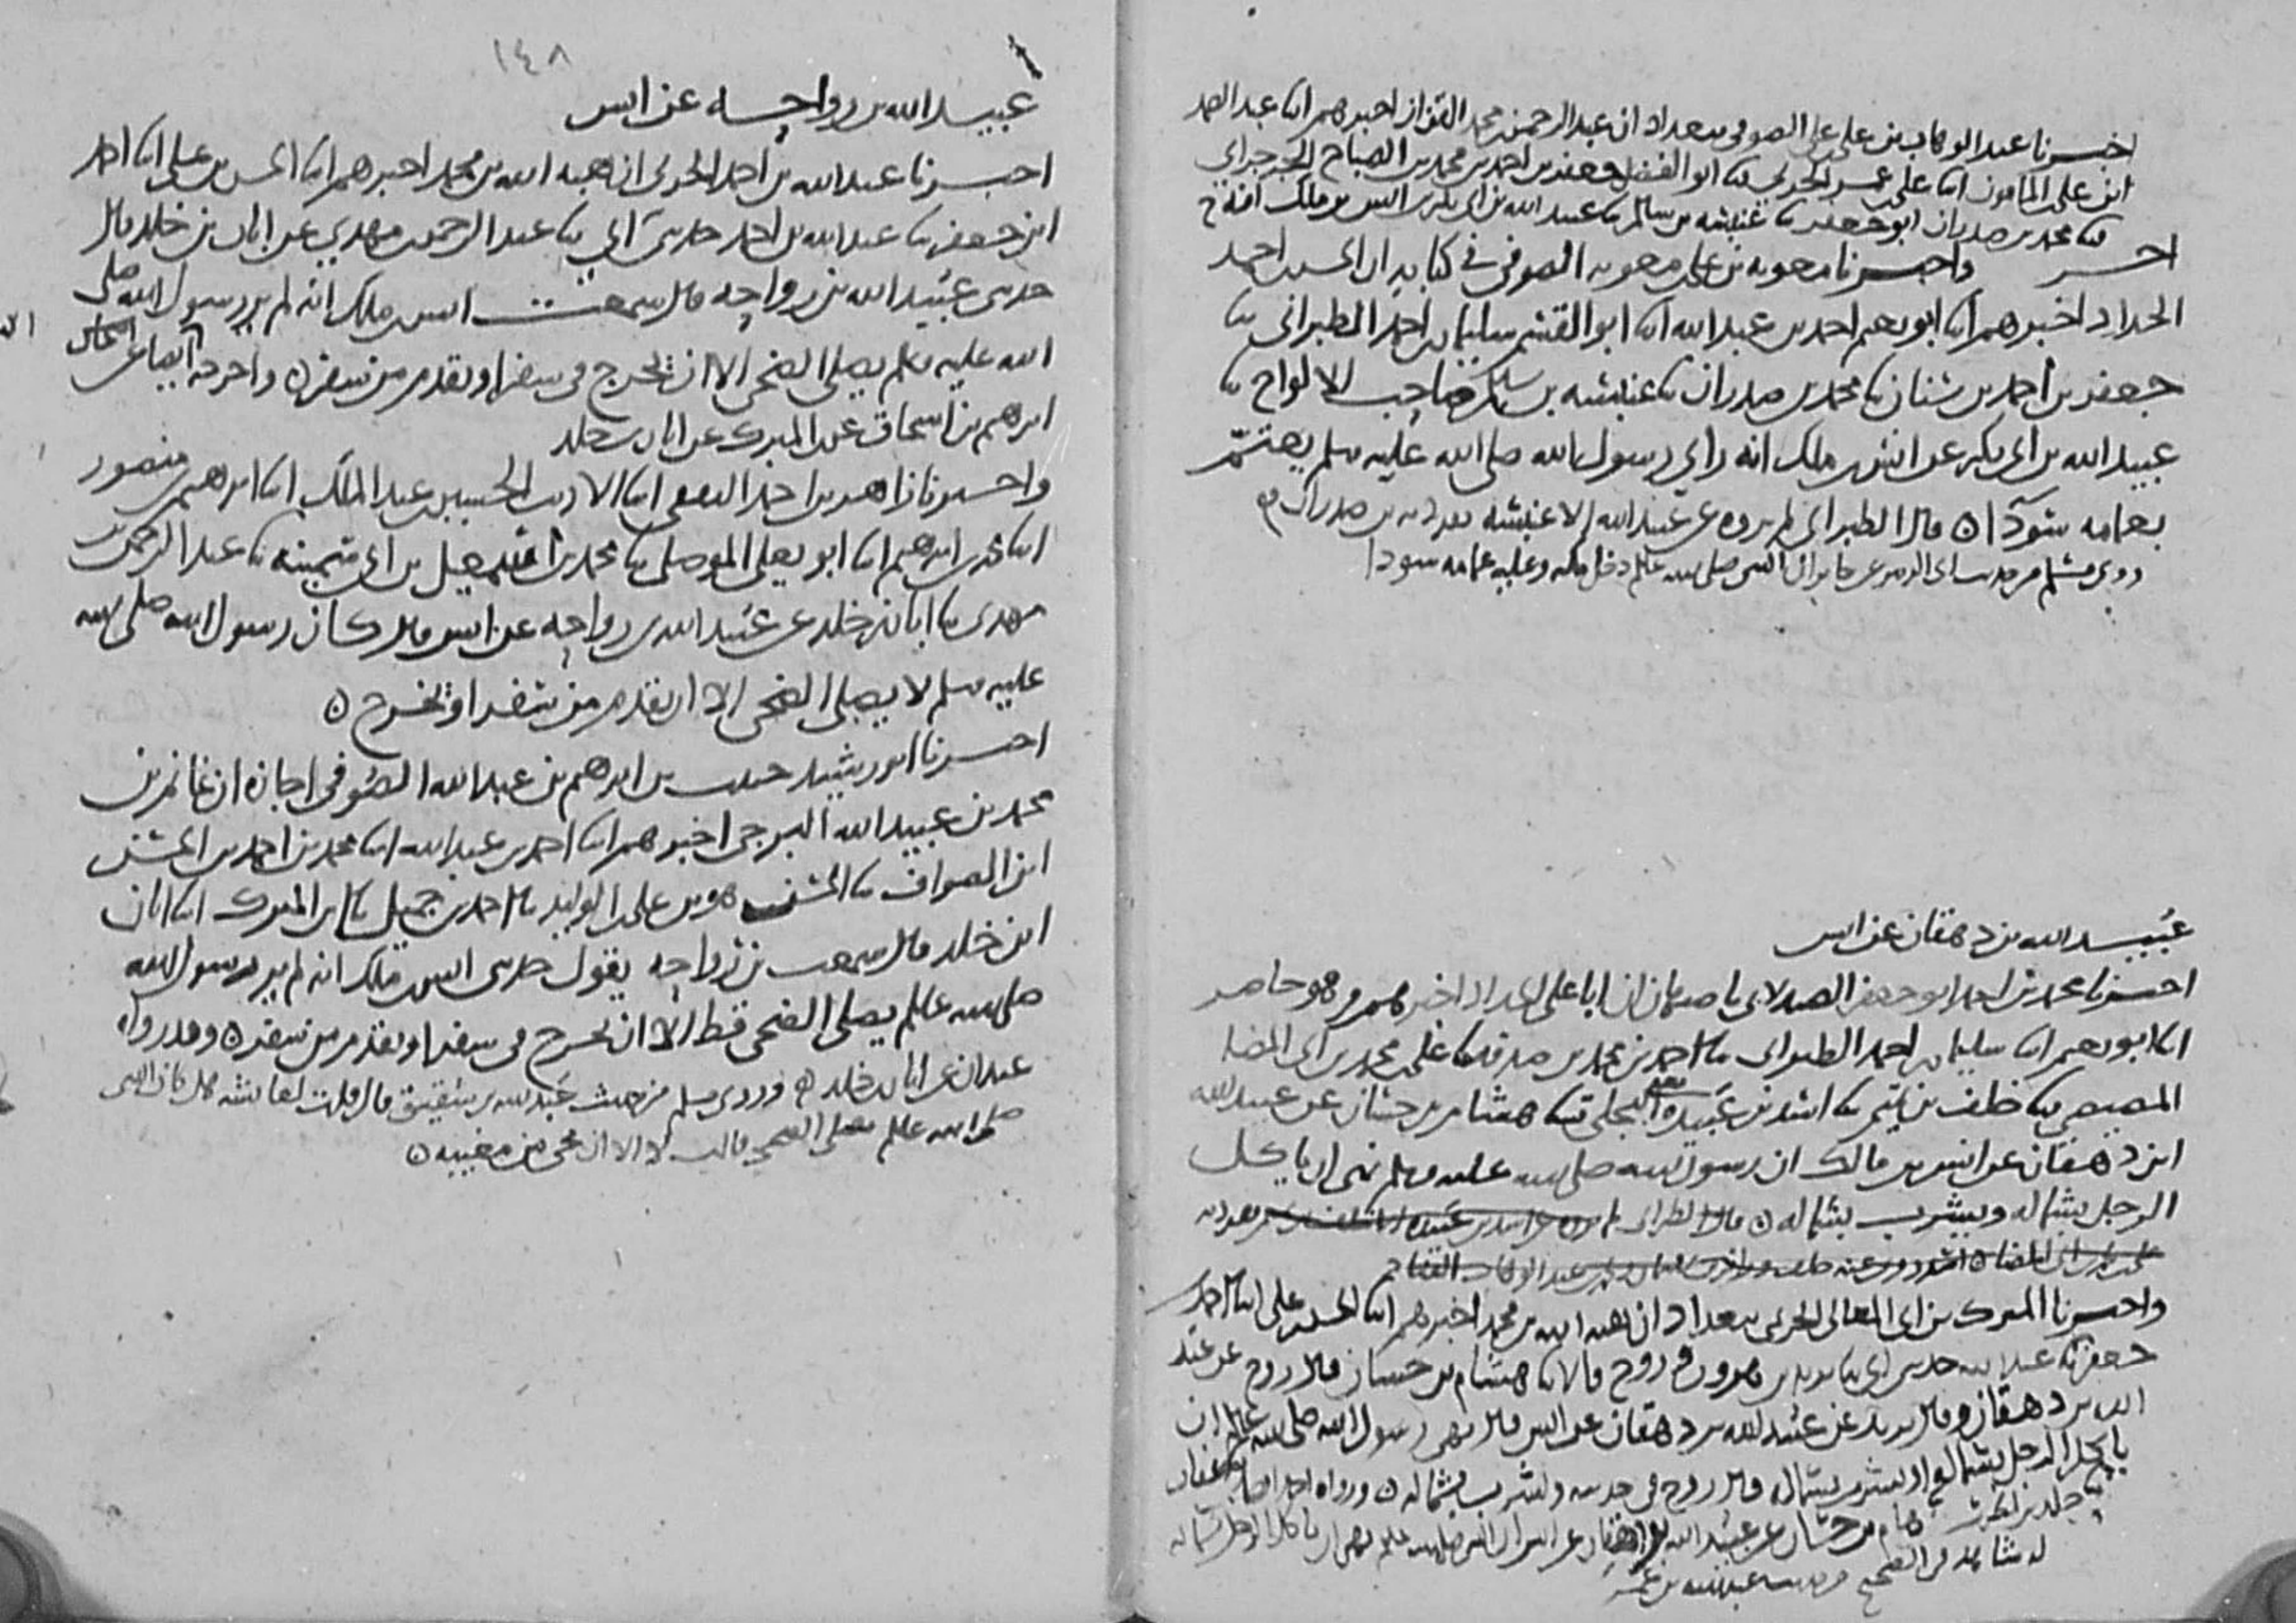 اخبرنا عبد الوهاب بن علي بن علي الصوفي ببغداد ان عبد الرحمن بن محمد القزاز اخبرهم ابنا عبد الصمد
ابن علي بن المامون ابنا علي بن عمر الحربي ثنا ابو الفضل جعفر بن احمد بن محمد بن الصباح الجرجراي
ثنا محمد بن صدران ابو جعفر ثنا عنبسه بن سالم ثنا عبيد الله بن ابي بكر بن انس بن ملك
واخبرنا معويه بن علي بن معويه الصوفي في كتابه ان الحسن بن احمد
الحداد اخبرهم ابنا ابو نعيم احمد بن عبد الله ابنا ابو القسم سليمان بن احمد الطبراني ثنا
جعفر بن احمد بن سنان ثنا محمد بن صدران ثنا عنبسه بن سالم صاحب الالواح ثنا
عبيد الله بن ابي بكر عن انس بن ملك انه راي رسول الله صلى الله عليه وسلم يعتم
بعمامه سودآ ٥ قال الطبراني لم يروه عن عبيد الله الا عنبسه تفرد به بن صدران
روى مسلم من حديث ابي الزبير عن جابر ان النبي صلى الله عليه وسلم دخل مكه وعليه عمامه سودا
عبيد الله بن دهقان عن انس
اخبرنا محمد بن احمد ابو جعفر الصيدلاني باصبهان ان ابا علي الحداد اخبرهم وهو حاضر
ابنا ابو نعيم ابنا سليمان بن احمد الطبراني ثنا احمد بن محمد بن صدقه ثنا علي بن محمد بن ابي المضا
المصيصي ثنا خلف بن تميم ثنا اسد بن عبيده البجلي ثنا هشام بن حسان عن عبيد الله
ابن دهقان عن انس بن مالك ان رسول الله صلى الله عليه وسلم نهى ان ياكل
الرجل بشماله ويشرب بشماله ٥ قال الطبراني لم يروه عن اسد بن عبيده الا خلف تفرد به
علي بن محمد بن ابي المضا
واخبرنا المبرك بن ابي المعالي الحريمي ببغداد ان هبه الله بن محمد اخبرهم ابنا الحسن بن علي ابنا احمد بن
جعفر ثنا عبد الله حدثني ابي ثنا يزيد بن هرون وروح قالا ثنا هشام بن حسان قال روح عن عبيد
الله بن دهقان وقال يزيد عن عبيد الله بن دهقان عن انس قال نهى رسول الله صلى الله عليه وسلم ان
ياكل الرجل بشماله او يشرب بشماله وقال روح في حديثه ويشرب بشماله ٥ ورواه احمد ايضا عن عفان
هشام بن حسان عن عبيد الله بن دهقان عن انس ان النبي صلى الله عليه وسلم نهى ان ياكل الرجل بشماله
له شاهد في الصحيح من حديث عبد الله بن عمر
١٤٨
عبيد الله بن رواحه عن انس
اخبرنا عبد الله بن احمد الحربي ان هبه الله بن محمد اخبرهم ابنا الحسن بن علي ابنا احمد
ابن جعفر ثنا عبد الله بن احمد حدثني ابي ثنا عبد الرحمن بن مهدي عن ابان بن خلد قال
حدثني عبيد الله بن رواحه قال سمعت انس بن ملك انه لم ير رسول الله صلى
الله عليه وسلم يصلي الضحى الا ان يخرج في سفر او يقدم من سفر ٥ واخرجه ايضا عن اسحاق
ابرهيم بن اسحاق عن بن المبرك عن ابان بن خلد
واخبرنا زاهر بن احمد الثقفي ابنا الاديب الحسين بن عبد الملك ابنا ابرهيم بن منصور
ابنا محمد بن ابرهيم ابنا ابو يعلى الموصلي ثنا محمد بن اسمعيل بن ابي سمينه ثنا عبد الرحمن بن
مهدي ثنا ابان بن خلد عن عبيد الله بن رواحه عن انس قال كان رسول الله صلى الله
عليه وسلم لا يصلي الضحى الا ان يقدم من سفر او يخرج ٥
اخبرنا ابو رشيد حبيب بن ابرهيم بن عبد الله الصوفي اجازه ان غانم بن
محمد بن عبيد الله البرجي اخبرهم ابنا احمد بن عبد الله ابنا محمد بن احمد بن الحسن
ابن الصواف ثنا الحسن هو بن علي بن الوليد ثنا احمد بن جميل ثنا بن المبرك ابنا ابان
ابن خلد قال سمعت بن رواحه يقول حدثني انس بن ملك انه لم ير رسول الله
صلى الله عليه وسلم يصلي الضحى قط الا ان يخرج في سفر او يقدم من سفر ٥ وقد رواه
عبدان عن ابان بن خلد ٥ وروى مسلم من حديث عبد الله بن شقيق قال قلت لعايشه هل كان النبي
صلى الله عليه وسلم يصلي الضحى قالت لا الا ان يجي من مغيبه ٥